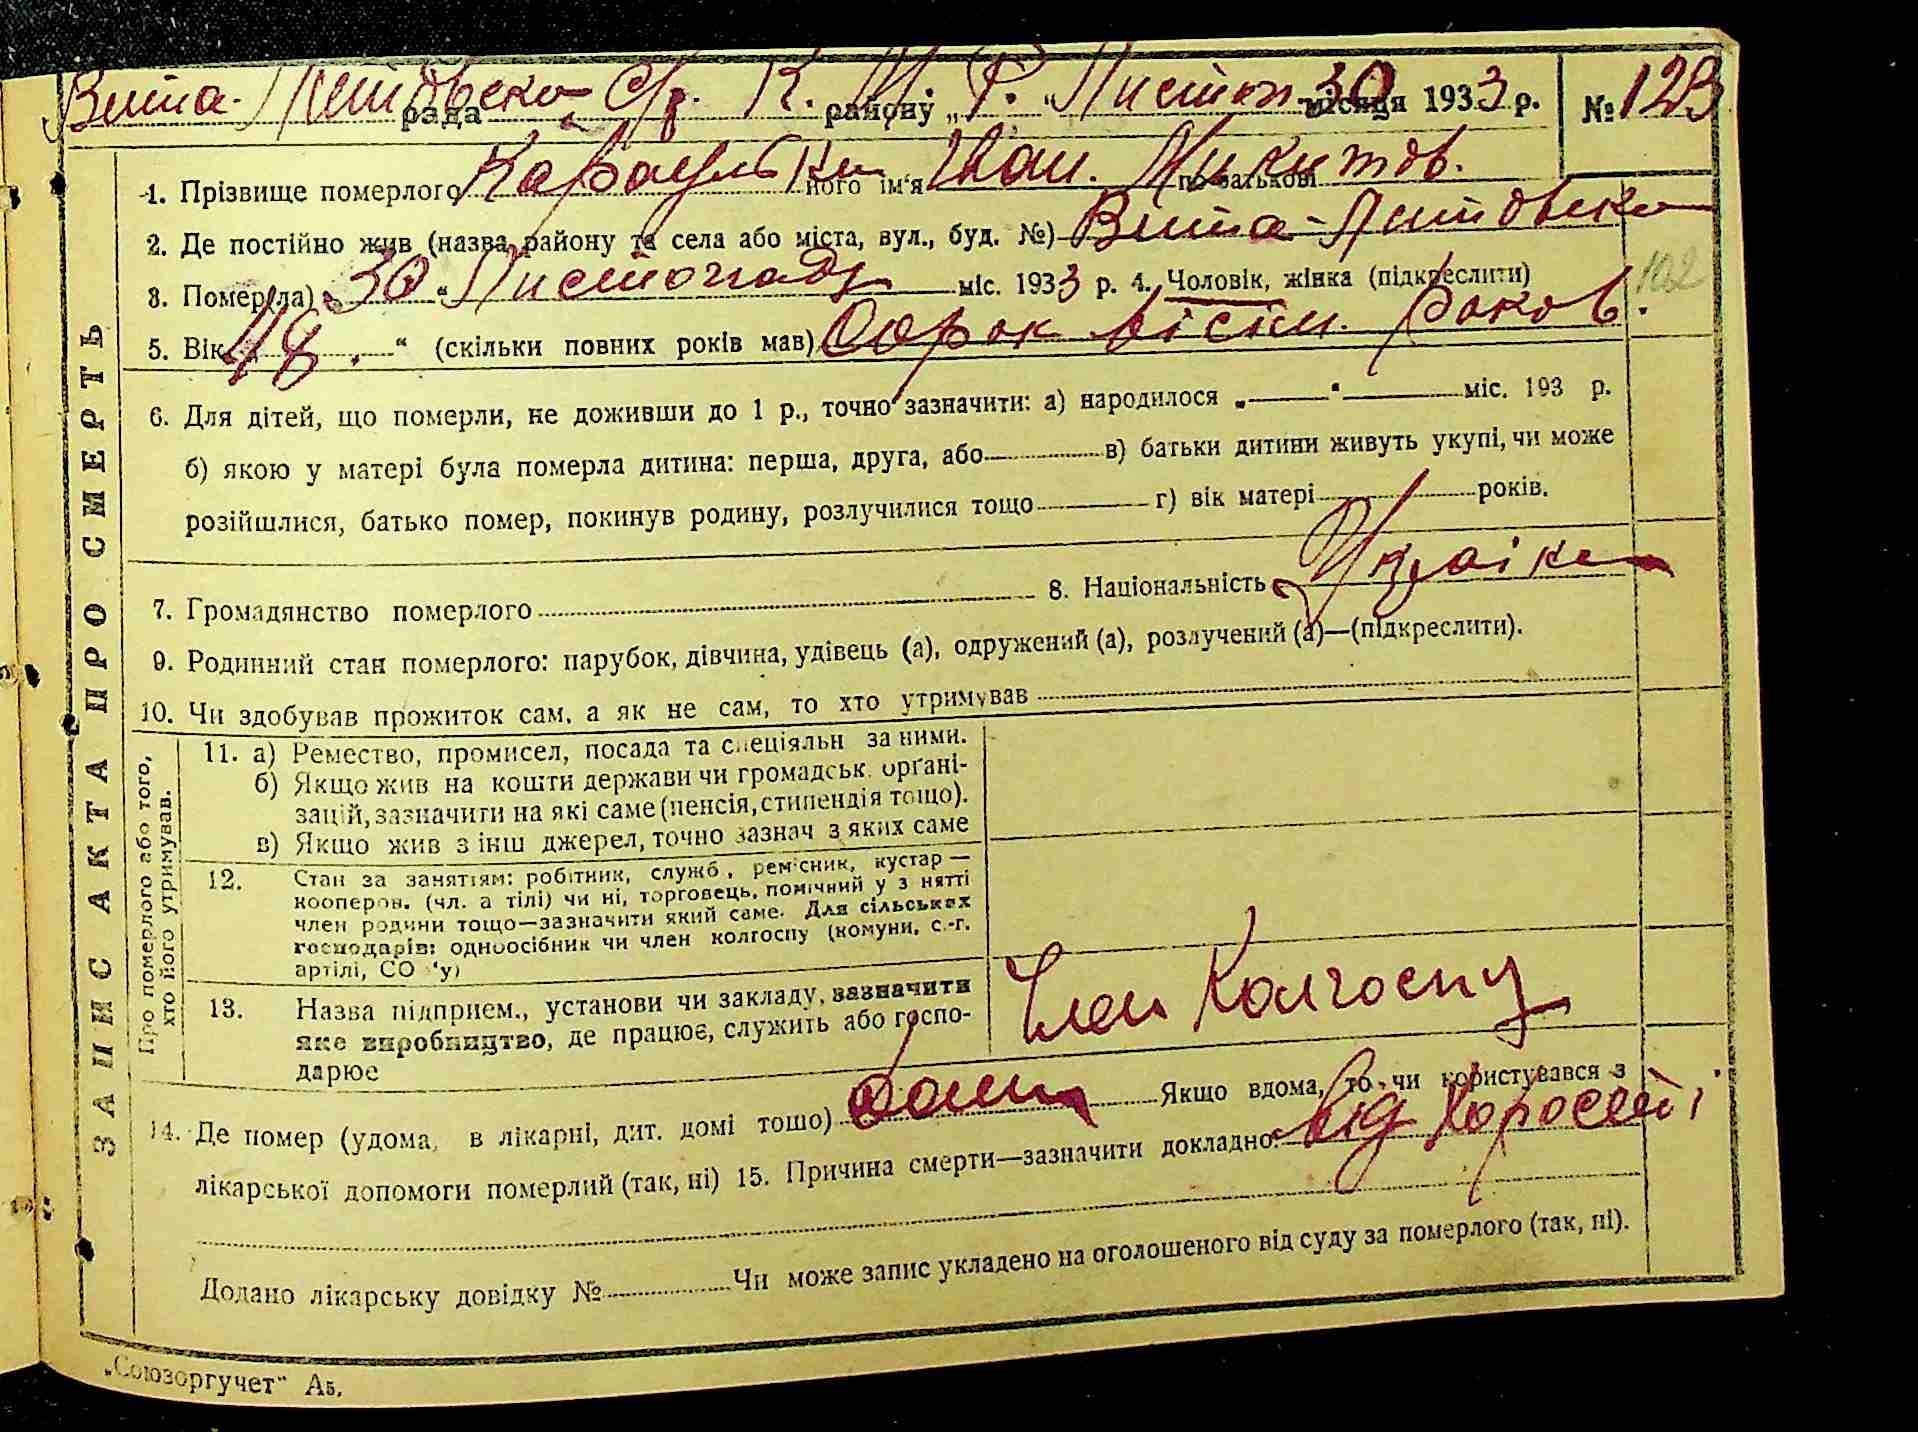 Вита-Поштовска С/р. рада К. М. району „Р." Листоп 30 місяця 1933 р. № 123
1. Прізвище померлого Караульки його ім'я Іван. по батькові Микитов.
2. Де постійно жив (назва району та села або міста, вул., буд. №) Вита-Поштовска
3. Помер(ла) „30" Листопаду міс. 1933 р. 4. Чоловік, жінка (підкреслити) 102
5. Вік „48." (скільки повних років мав) Сорок вісім. роков.
6. Для дітей, що померли, не доживши до 1 р., точно зазначити: а) народилося „——" —— міс. 193 р.
б) якою у матері була померла дитина: перша, друга, або—— в) батьки дитини живуть укупі, чи може
розійшлися, батько помер, покинув родину, розлучилися тощо—— г) вік матері —— років.
7. Громадянство померлого 8. Національність Украінец
9. Родинний стан померлого: парубок, дівчина, удівець (а), одружений (а), розлучений (а)—(підкреслити).
10. Чи здобував прожиток сам, а як не сам, то хто утримував
ЗАПИС АКТА ПРО СМЕРТЬ
Про померлого або того,
хто його утримував.
11. а) Ремество, промисел, посада та спеціяльн за ними.
б) Якщо жив на кошти держави чи громадськ. орґані-
зацій, зазначити на які саме (пенсія, стипендія тощо).
в) Якщо жив з інш джерел, точно зазнач з яких саме
12. Стан за заняттям: робітник, служб., ремісник, кустар —
кооперов. (чл. артілі) чи ні, торговець, помічний у занятті
член родини тощо—зазначити який саме. Для сільських
господарів: одноосібник чи член колгоспу (комуни, с.-г.
артілі, СО у)
Член Колгоспу
13. Назва підприєм., установи чи закладу, зазначити
яке виробництво, де працює, служить або госпо-
дарює
14. Де помер (удома, в лікарні, дит. домі тощо) дома Якщо вдома, то чи користувався з
лікарської допомоги померлий (так, ні) 15. Причина смерти—зазначити докладно: від
Додано лікарську довідку № Чи може запис укладено на оголошеного від суду за померлого (так, ні).
„Союзоргучет" А5.